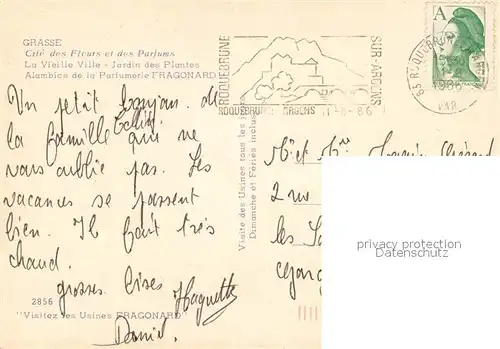 GRASSE
Cité des Fleurs et des Parfums
La Vieille Ville - Jardin des Plantes
Alambics de la Parfumerie FRAGONARD
ROQUEBRUNE
SUR-ARGENS
ROQUEBRUNE ARGENS
11-8-86
A
1986
VAR
Un petit bonjour de
la famille qui ne
vous oublie pas. Les
vacances se passent
bien. Il fait très
chaud.
grosses bises Huguette
Daniel
Visite des Usines tous les jours
Dimanche et Fêtes inclus
Mr et Mme
2 rue
les
privacy protection
Datenschutz
2856
"Visitez les Usines FRAGONARD"